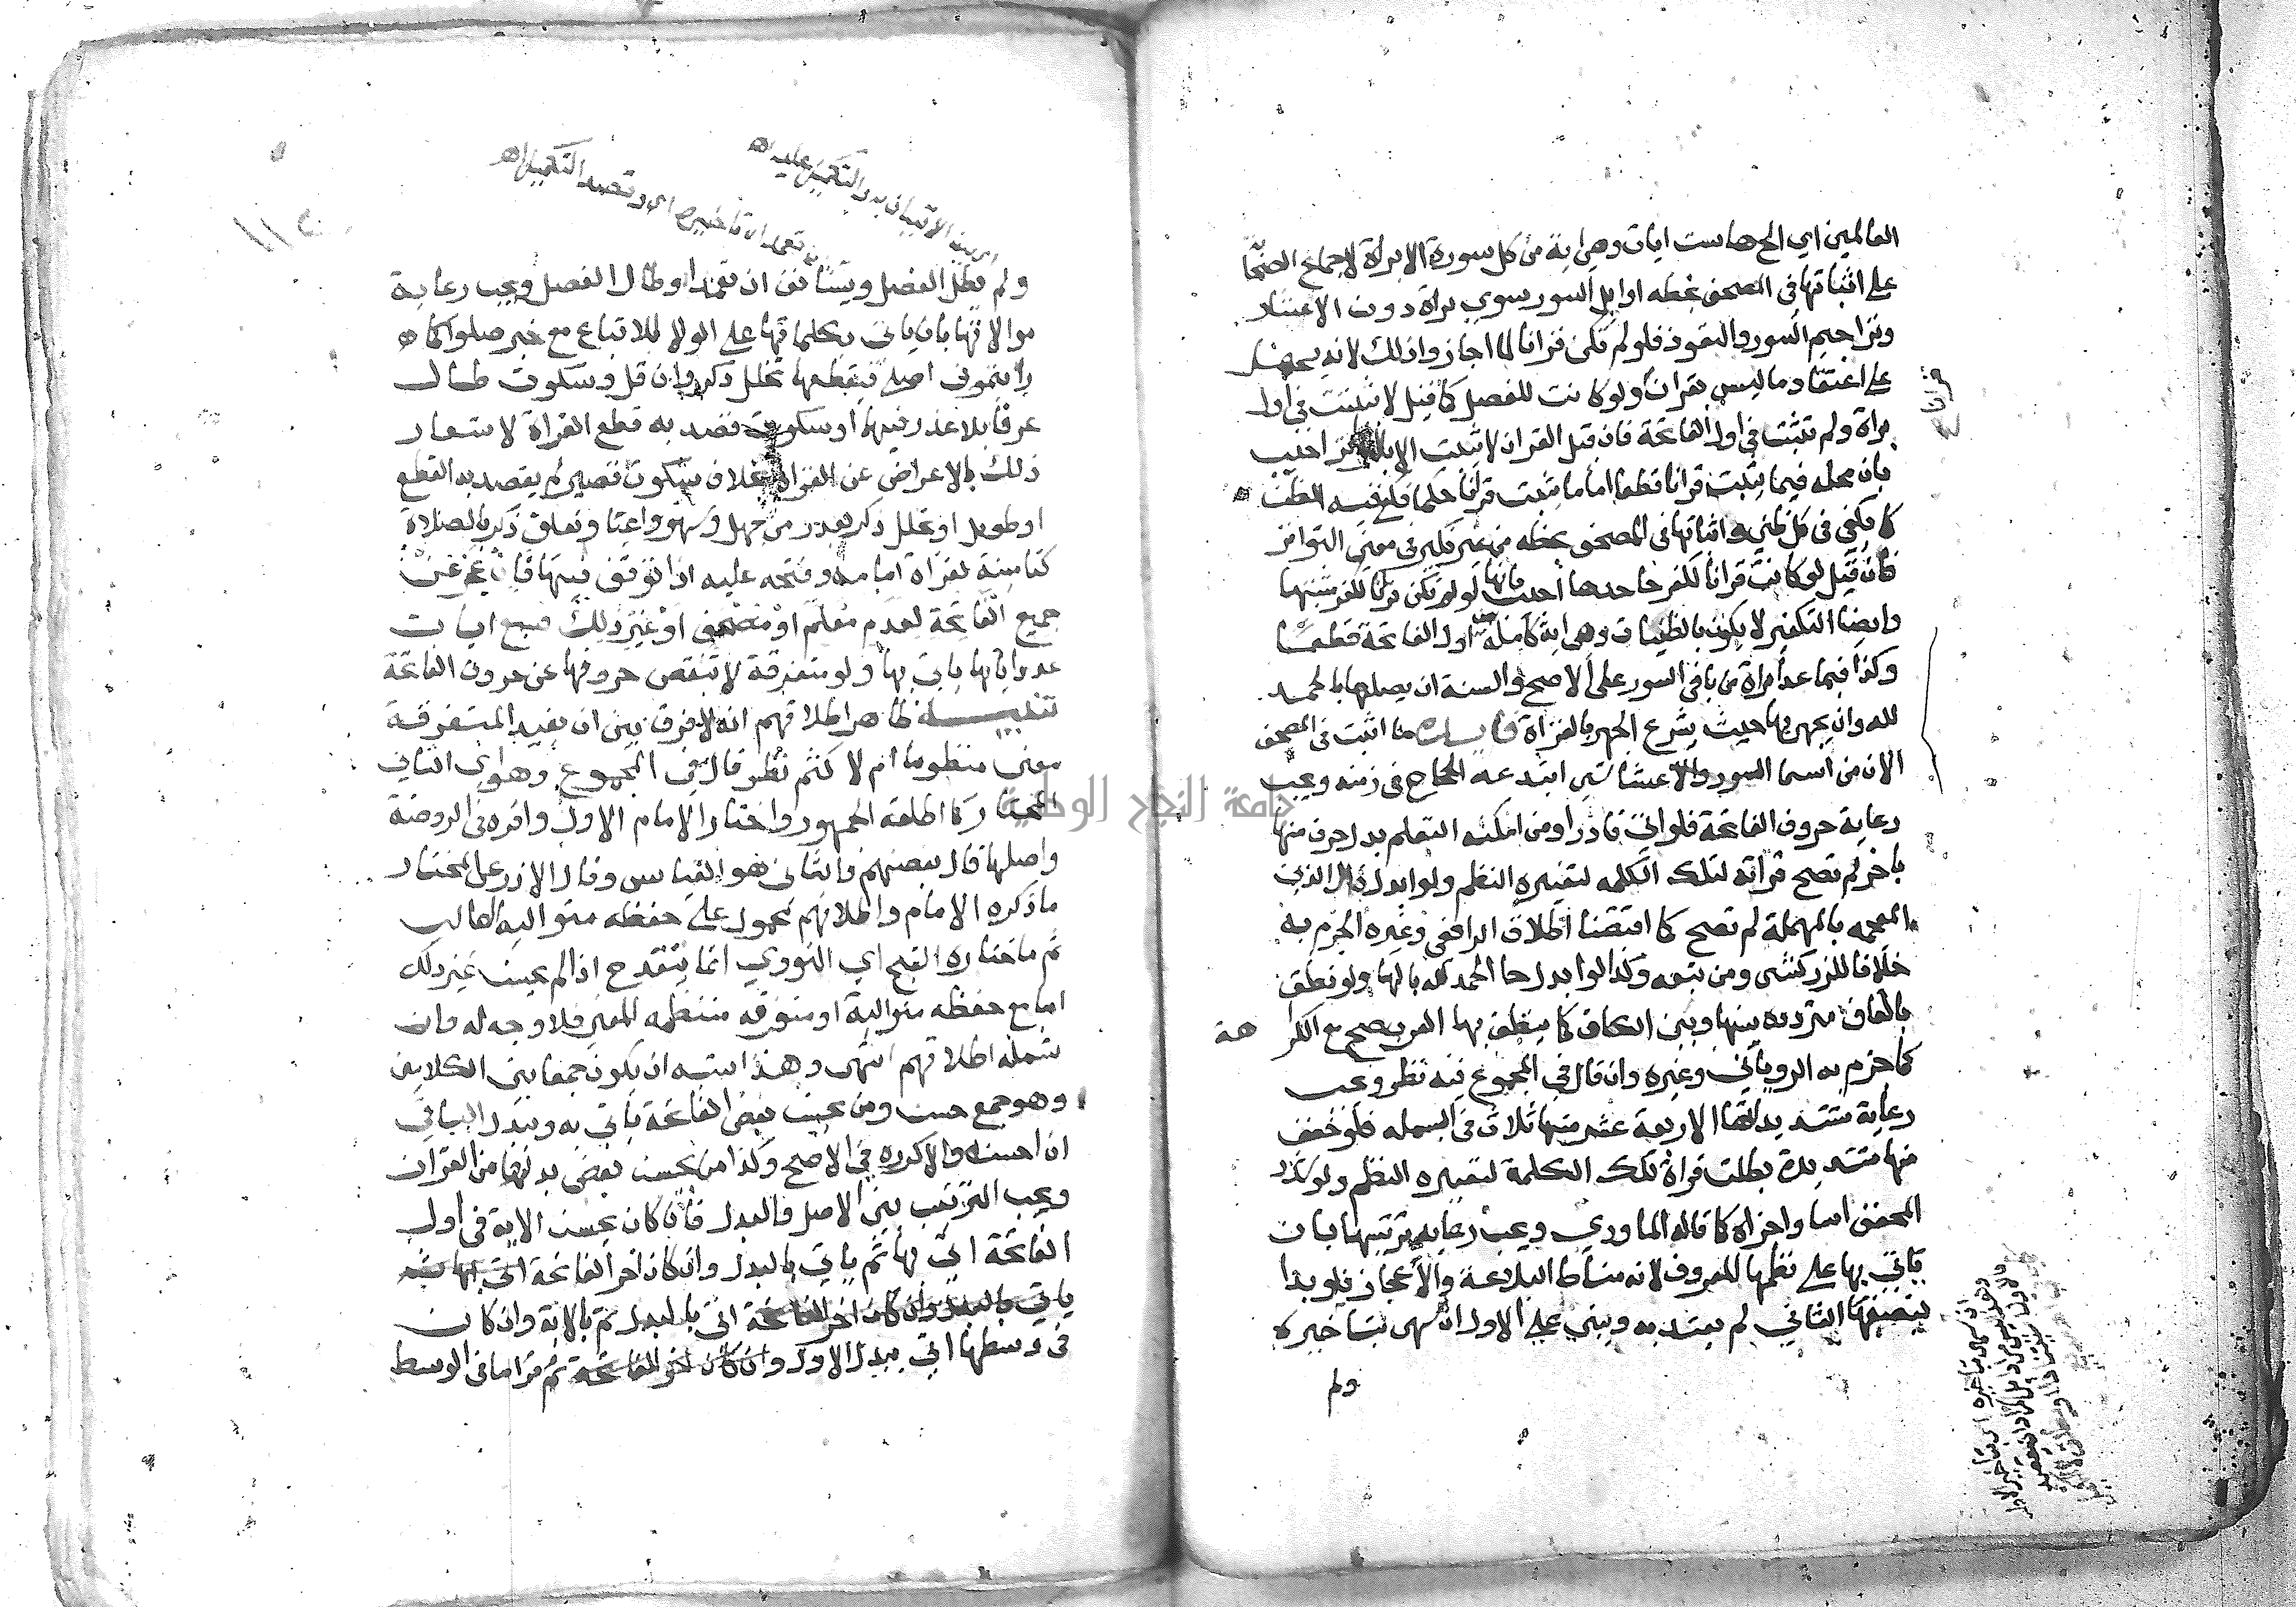 العالمين اي الخ هاست ايات وهي اية من كل سورة الا براة لاجماع الصحا
على اثباتها في المصحف بخطه اوايل السور سوي براة دون الاعشار
وتراجم السور والتعوذ فلو لم تكن قرانا لما اجازوا ذلك لانه يحمل
على اعتقاد ما ليس بقران ولو كانت للفصل كما قيل لا ثبتت في اول
براة ولم تثبت في اول الفاتحة فان قيل القران لا يثبت الا بالتواتر اجيب
بان محله فيما يثبت قرانا قطعا اما ما يثبت قرانا حكما فكفي فيه الظن
كما يكفي في كل ظني واثباتها في المصحف بخطه من غير نكير في معني التواتر
فان قيل لو كانت قرانا لكفر جاحدها اجيب بانها لو لم تكن قرانا لكفر مثبتها
وايضا التكفير لا يكون بالظنيات وهي اية كاملة من اول الفاتحة قطعا
وكذا فيما عدا براة من باقي السور على الاصح والسنة ان يصلها بالحمد
لله وان يجهر بها حيث يشرع الجهر بالقراة فايدة ما اثبت في المصحف
الان من اسما السور والاعشار شي ابتدعه الحجاج في زمنه ويجب
رعاية حروف الفاتحة فلو اتي قادر او من امكنه التعلم بدل حرف منها
باخر لم تصح قراته لتلك الكلمه لتغييره النظم ولو ابدل ذال الذين
المعجمه بالمهملة لم تصح كما اقتضا اطلاق الرافعي وغيره الجزم به
خلافا للزركشي ومن تبعه وكذا لو ابدل حا الحمد لله بالها ولو نطق
بالقاف مترددة بينها وبين الكاف كما ينطق بها العرب صح مع الكرا هة
كما جزم به الروياني وغيره وان قال في المجموع فيه نظر ويجب
رعاية تشديداتها الاربعة عشر منها ثلاث في البسمله فلو خفف
منها مشددة بطلت قراة تلك الكلمة لتغييره النظم ولو شدد
المخفف اسا واجزاه كما قاله الماوردي ويجب رعاية ترتيبها بان
ياتي بها على نظمها المعروف لانه مناط البلاغة والاعجاز فلو بدا
بنصفها الثاني لم يعتد به ويبني على الاول ان سهي بتاخيره
ولم
اي بنية الاتيان به والتكميل عليه اه
تعمد اي تاخيره اي وقصد التكميل اه
ولم يطل الفصل ويستانف ان تعمد او طال الفصل ويجب رعاية
موالاتها بان ياتي بكلماتها على الولا للاتباع مع خبر صلوا كما
رايتموني اصلي فيقطعها تخلل ذكر وان قل وسكوت طال
عرفا بلا عذر فيهما او سكوت قصد به قطع القراة لاشعار
ذلك بالاعراض عن القراة بخلاف سكوت قصير لم يقصد به القطع
او طويل او تخلل ذكر بعذر من جهل وسهو واعيا وتعلق ذكر بالصلاة
كتامينه لقراة امامه وفتحه عليه اذا توقف فيها فان عجز عن
جميع الفاتحة لعدم معلم او مصحف او غير ذلك فسبع ايات
عدد اياتها ياتي بها ولو متفرقة لا تنقص حروفها عن حروف الفاتحة
تنبيه ظاهر اطلاقهم انه لا فرق بين ان يفيد المتفرقة
معني منظوما ام لا كثم نظر قال في المجموع وهو اي الثاني
المختار كما اطلقه الجمهور واختار الامام الاول واقره في الروضة
واصلها قال بعضهم والثاني هو القياس وقال الاذرعي المختار
ما ذكره الامام واطلاقهم محمول على حفظه متواليه الغالب
ثم ما اختاره الشيخ اي النووي انما ينقدح اذا لم يحسن غير ذلك
اما مع حفظه متوالية او متفرقه منتظمه المعني فلا وجه له وان
شمله اطلاقهم انتهى وهذا اشبه ان يكون جمعا بين الكلامين
وهو جمع حسن ومن يحسن بعض الفاتحة ياتي به ويبدل الباقي
ان احسنه والا كرره في الاصح وكذا من يحسن بعض بدلها من القران
ويجب الترتيب بين الاصل والبدل فان كان يحسن الاية في اول
الفاتحة اتي بها ثم ياتي بالبدل وان كان اخر الفاتحة اتي بها ثم
ياتي بالبدل وان كان اخر الفاتحة اتي بالبدل ثم بالاية وان كان
في وسطها اتي ببدل الاول وان كان اخر الفاتحة ثم قرا ما في الوسط
جامعة النجاح الوطنية